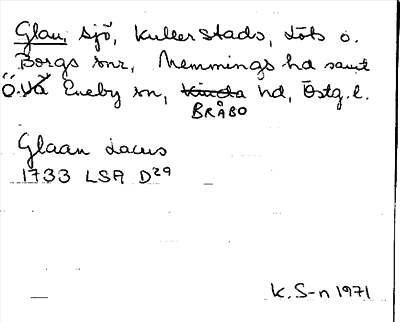 Glan, sjö, Kullerstads, Löts o.
Borgs snr, Memmings hd samt
Ö. Eneby sn, Kinda hd, Östg. l.
BRÅBO
Glaan Lacus
1733 LSA D29
K. S-n 1971